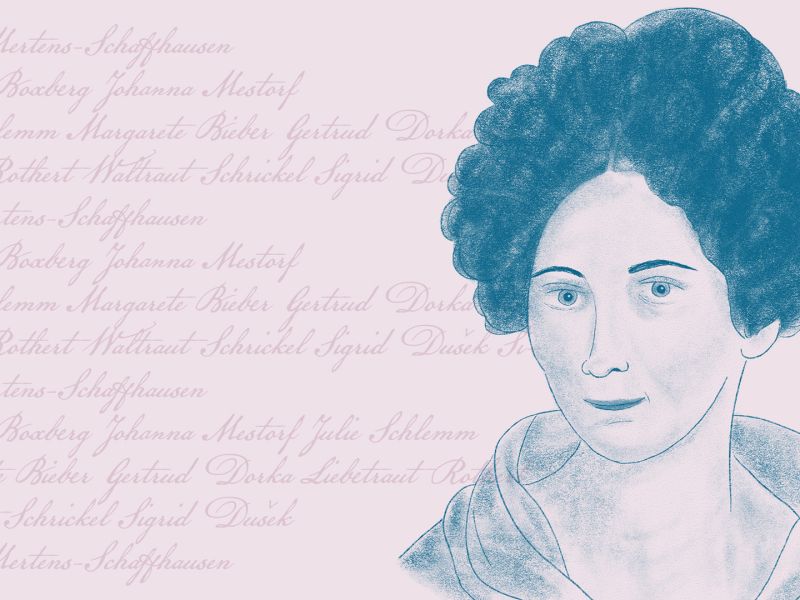 Mertens-Schaffhausen
Boxberg Johanna Mestorf
lemm Margarete Bieber Gertrud Dorka
Rothert Waltraut Schrickel Sigrid Du
tens-Schaffhausen
Boxberg Johanna Mestorf
lemm Margarete Bieber Gertrud Dorka
Rothert Waltraut Schrickel Sigrid Dušek Si
tens-Schaffhausen
Boxberg Johanna Mestorf Julie Schlemm
e Bieber Gertrud Dorka Liebetraut Rothe
Schrickel Sigrid Dušek
Mertens-Schaffhausen